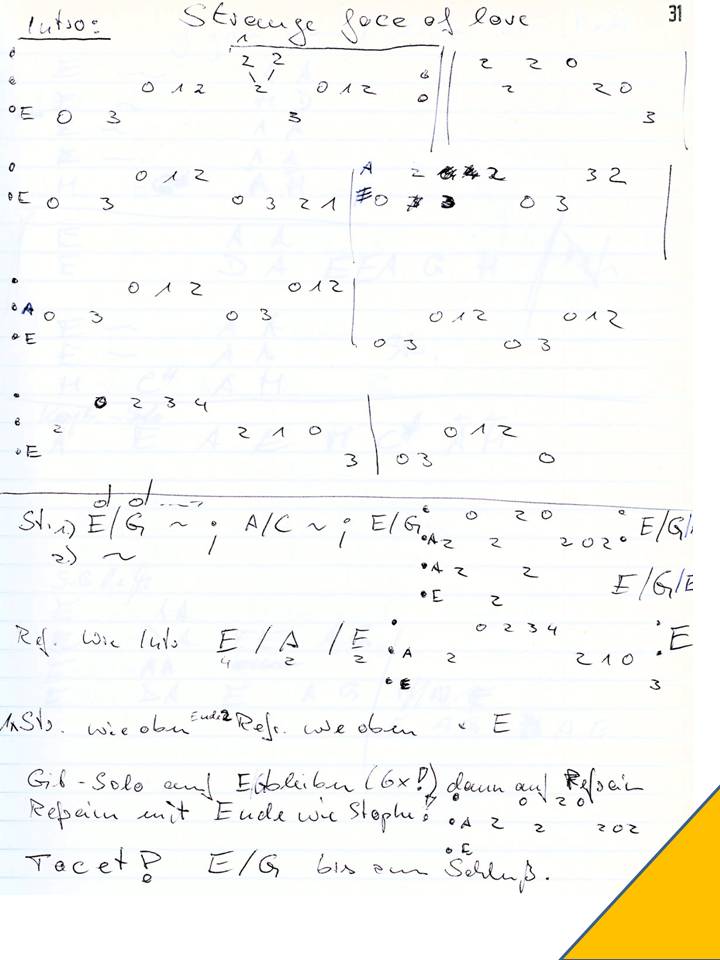 Intro: Strange face of love 31
1
2 2 2 2 0
0 1 2 2 0 1 2 2 2 0
E 0 3 3 3
0 1 2 A 2 2 3 2
E 0 3 0 3 2 1 E 0 3 0 3
0 1 2 0 1 2
A 0 3 0 3 0 1 2 0 1 2
E 0 3 0 3
0 2 3 4
2 2 1 0 0 1 2
E 3 0 3 0
St. 1) E/G ~ ; A/C ~ ; E/G 0 2 0 E/G/
2) ~ A 2 2 2 0 2
A 2 2 E/G/E
E 2
Ref. wie Intro E / A / E 0 2 3 4 E
4 2 2 A 2 2 1 0
E 3
1x Str. wie oben Ende 2 Refr. wie oben E
Git-Solo auf E bleiben (6x!) dann auf Refrain
Refrain mit Ende wie Strophe! 0 2 0
A 2 2 2 0 2
E
Tacet! E/G bis zum Schluß.